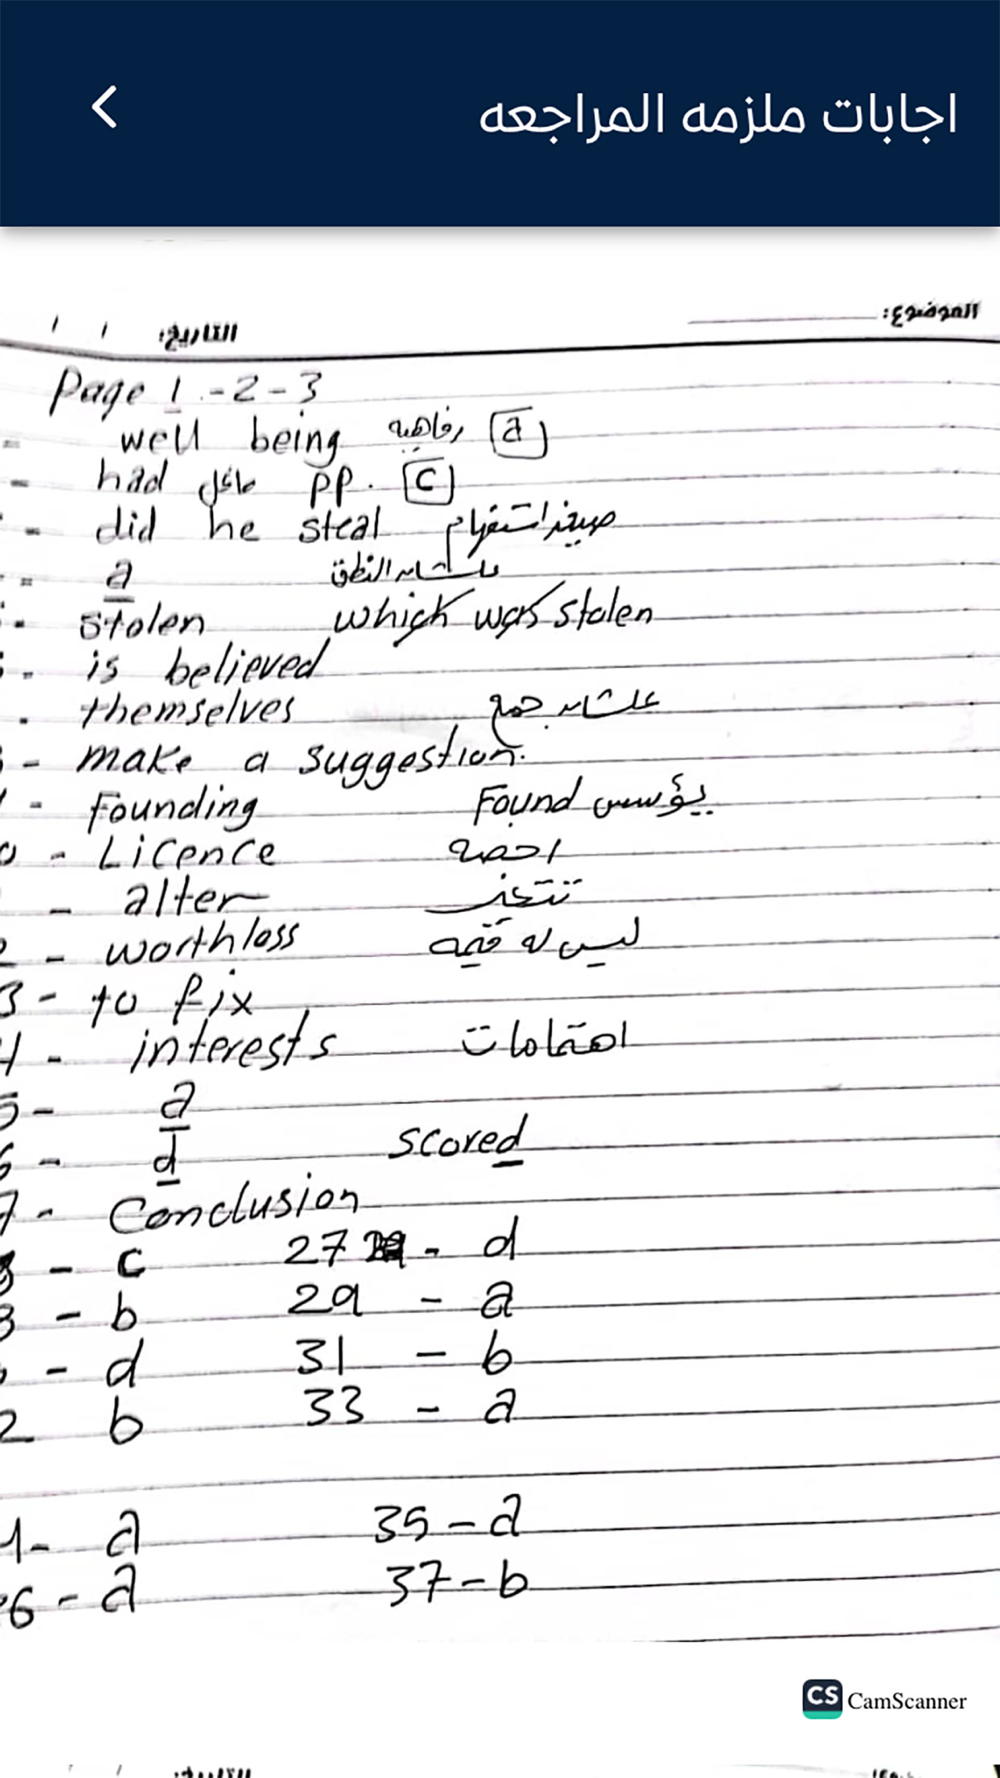 اجابات ملزمه المراجعه
الموضوع:
التاريخ: / /
Page 1 - 2 - 3
- well being رفاهيه a
- had فاعل pp. c
- did he steal صيغه استفهام
- a علشان النطق
- stolen which was stolen
- is believed
- themselves علشان جمع
- make a suggestion.
- Founding Found يؤسس
0 - Licence
- alter
2 - worthless ليس له قيمه
3 - to fix
4 - interests اهتمامات
5 - a
6 - d scored
7 - Conclusion
8 - c 27 - d
- b 29 - a
- d 31 - b
2 b 33 - a
4- a 35 - a
36 - a 37 - b
CS CamScanner
التاريخ: